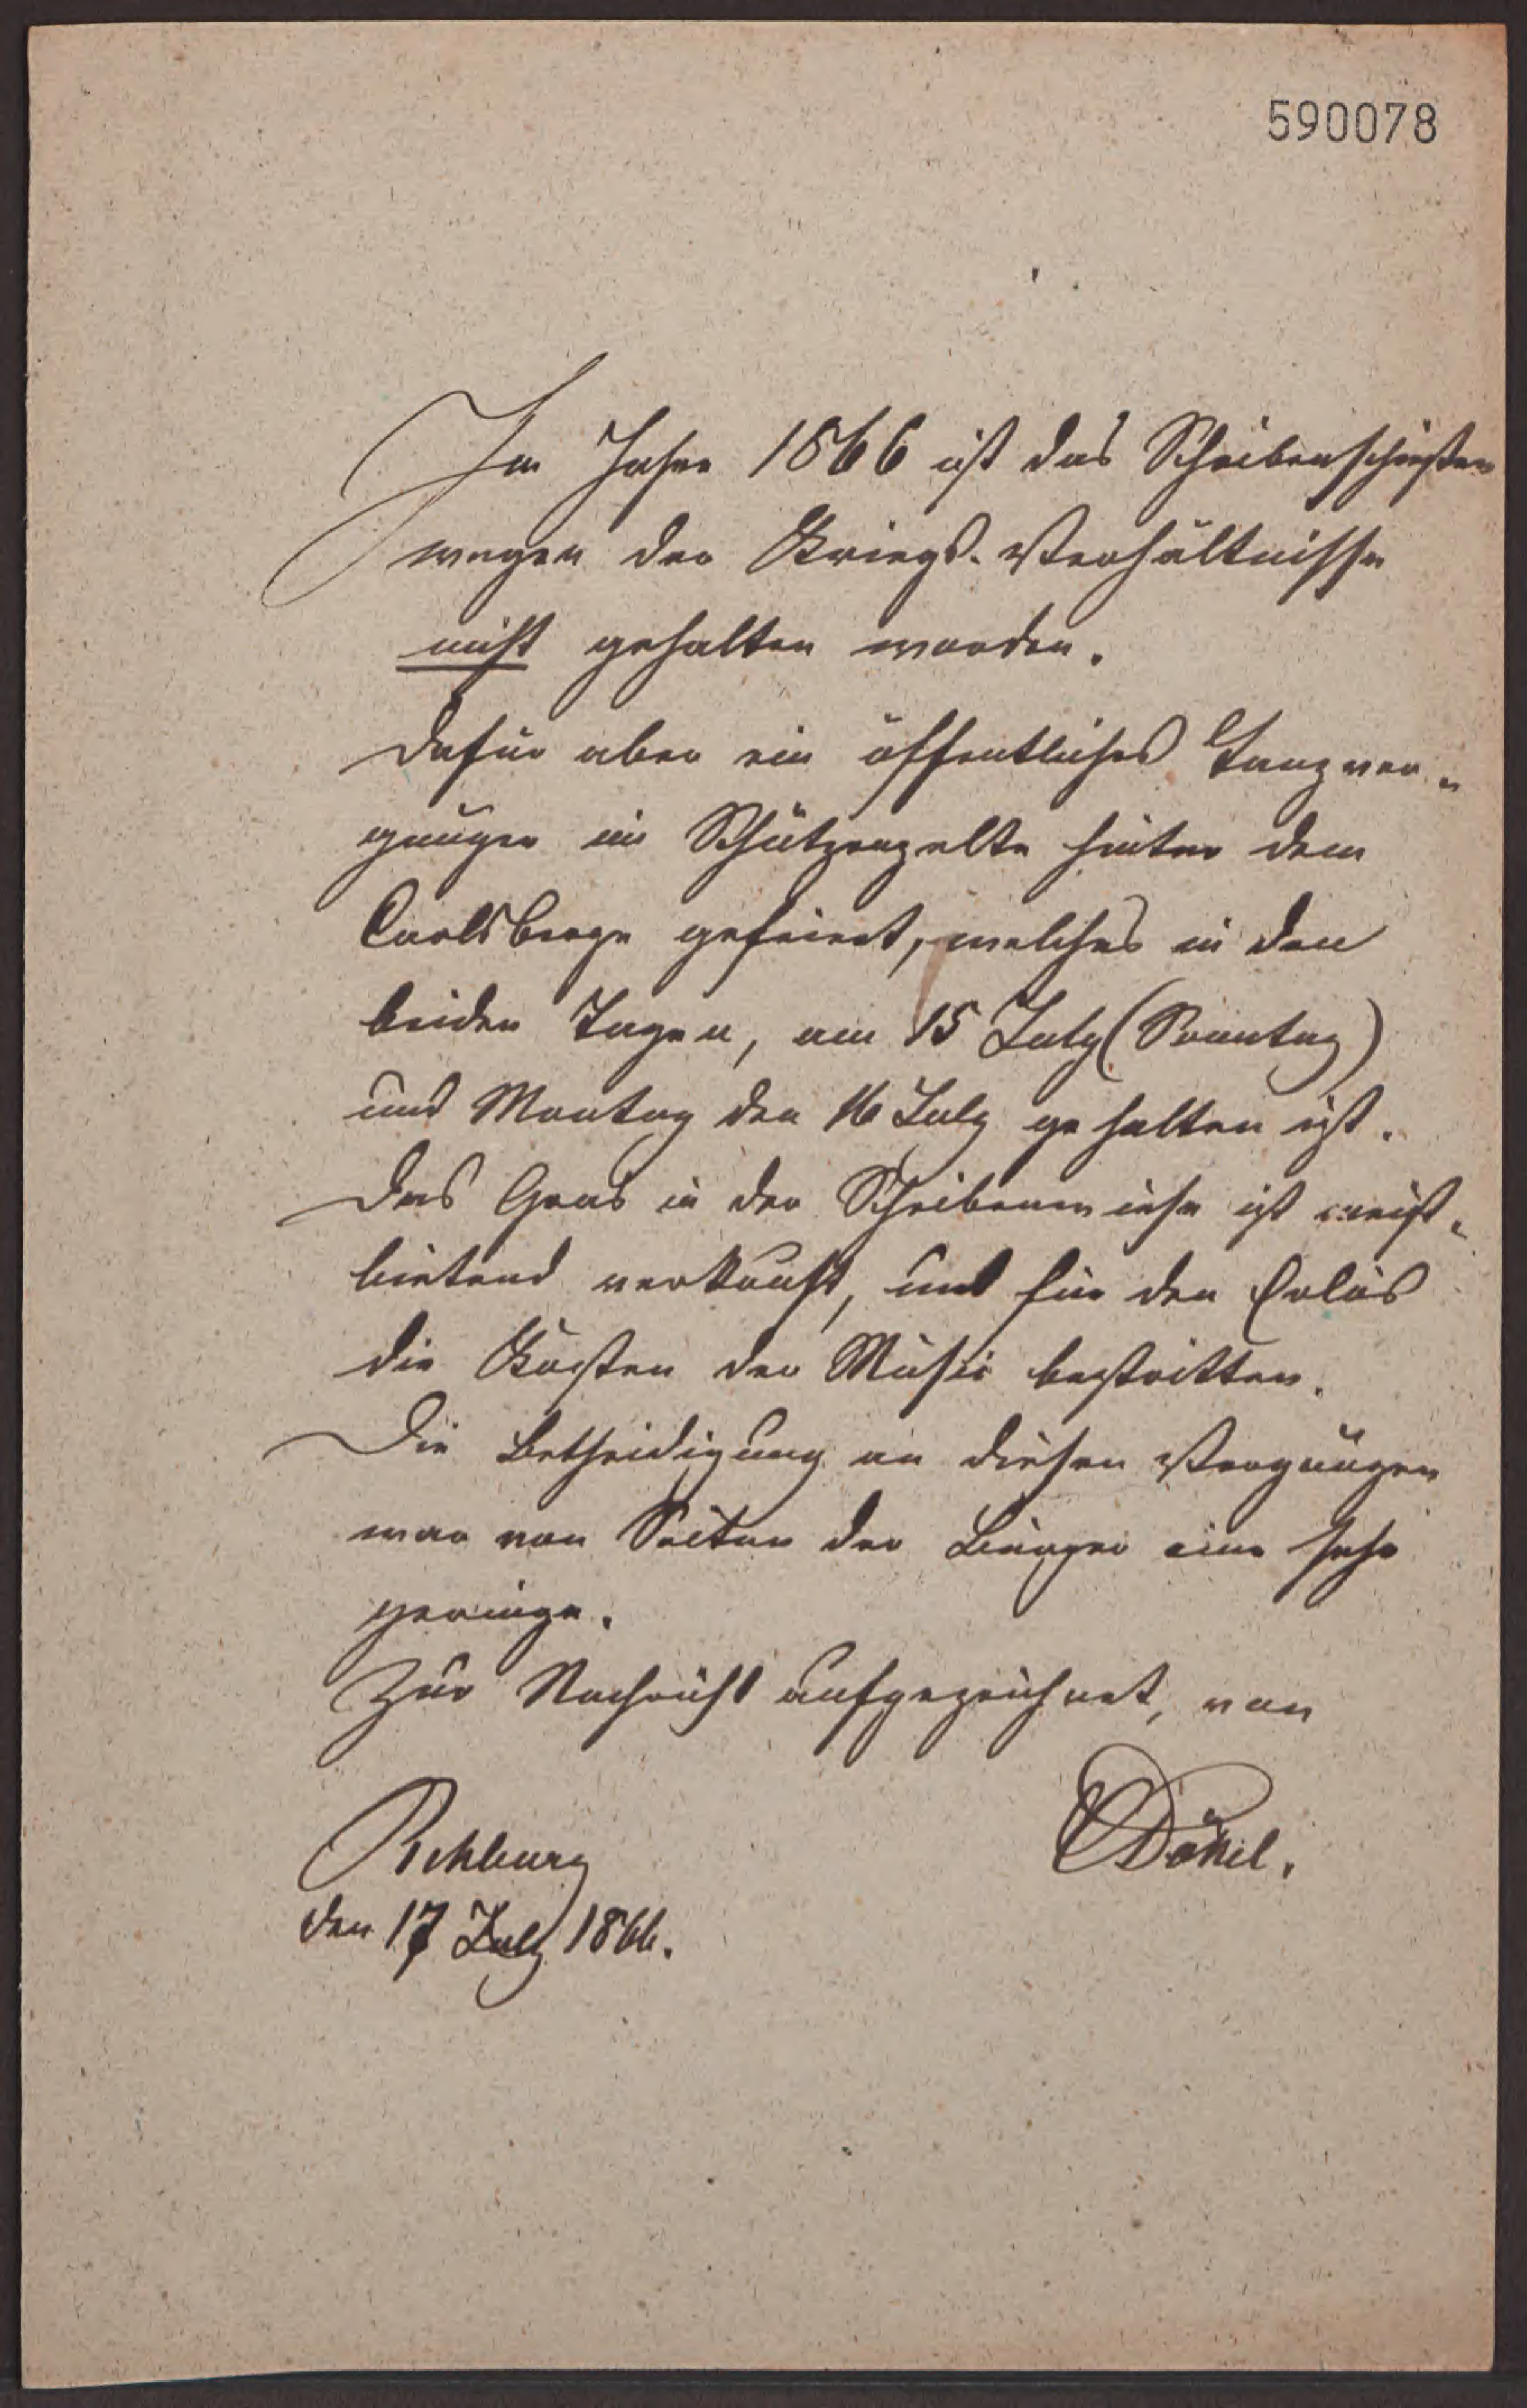 590078
Im Jahre 1866 ist das Scheibenschießen
wegen der Kriegs-Verhältnisse
nicht gehalten worden.
Dafür aber ein öffentliches Tanzver-
gnügen im Schützenzelte hinter dem
Carlsberge gefeiert, welches in den
beiden Tagen, am 15 July (Sonntag)
und Montag den 16 July gehalten ist.
Das Gras in der Scheibenwiese ist meist-
bietend verkauft, und für den Erlös
die Kosten der Musik bestritten.
Die Betheidigung an diesen Vergnügen
war von Seiten der Bürger eine sehr
geringe.
Zur Nachricht aufgezeichnet, von
Rehburg
den 17 July 1866.